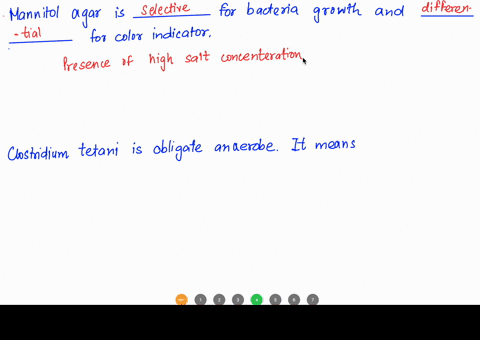 Mannitol agar is selective for bacteria growth and differen-
-tial for color indicator.
Presence of high salt concenteration
Clostridium tetani is obligate anaerobe. It means
1 2 3 4 5 6 7